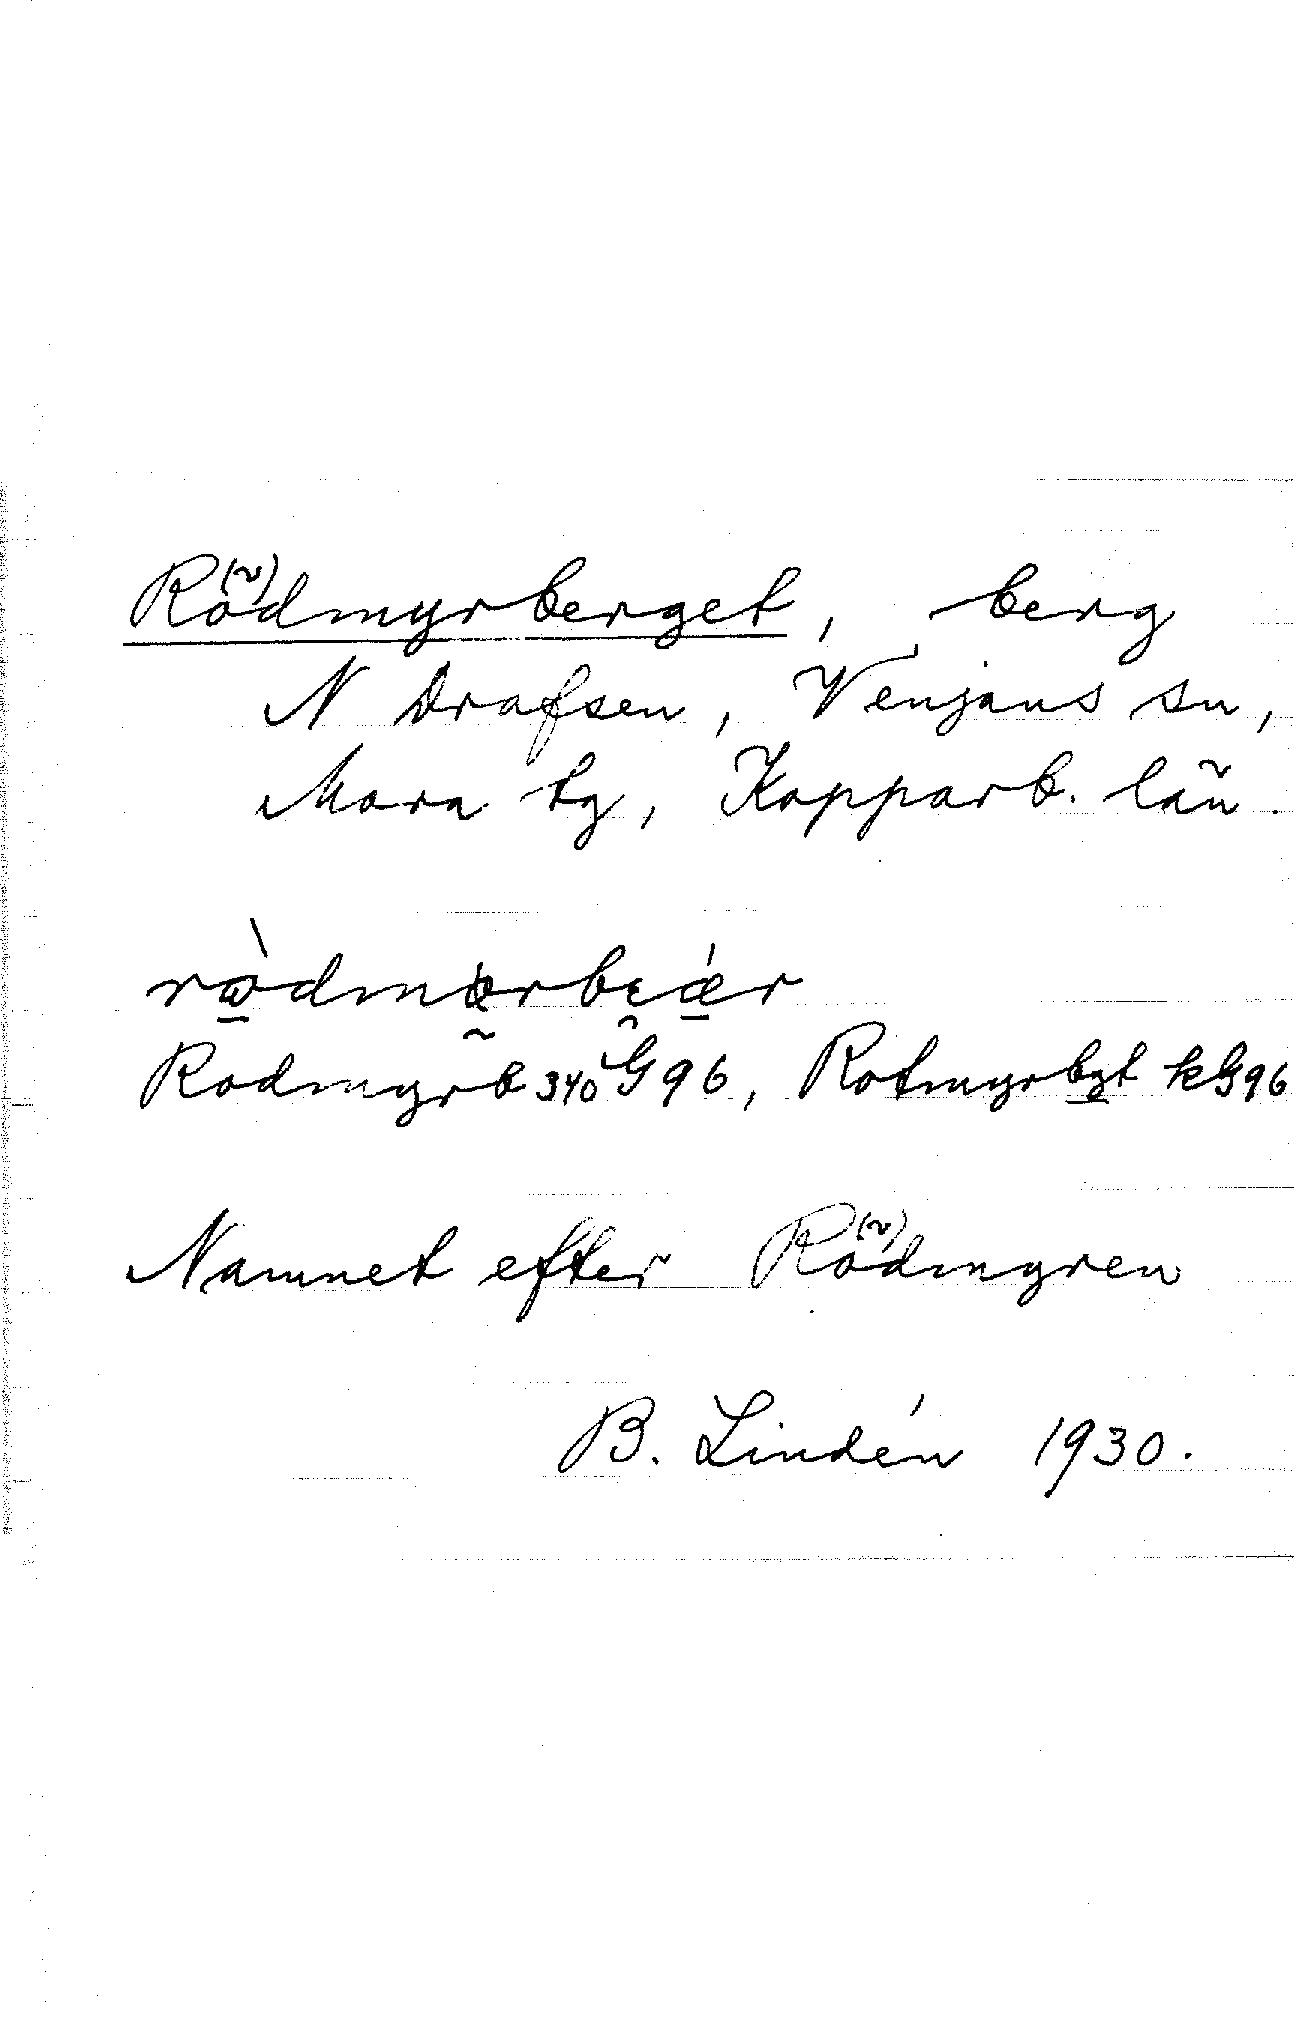 Rö(~)dmyrberget, berg
N Drafsen, Venjans sn,
Mora tg, Kopparb. län.
Rodmyrb 340 G96, Rotmyrbgt kG96
Namnet efter Rö(~)dmyren
B. Lindén 1930.